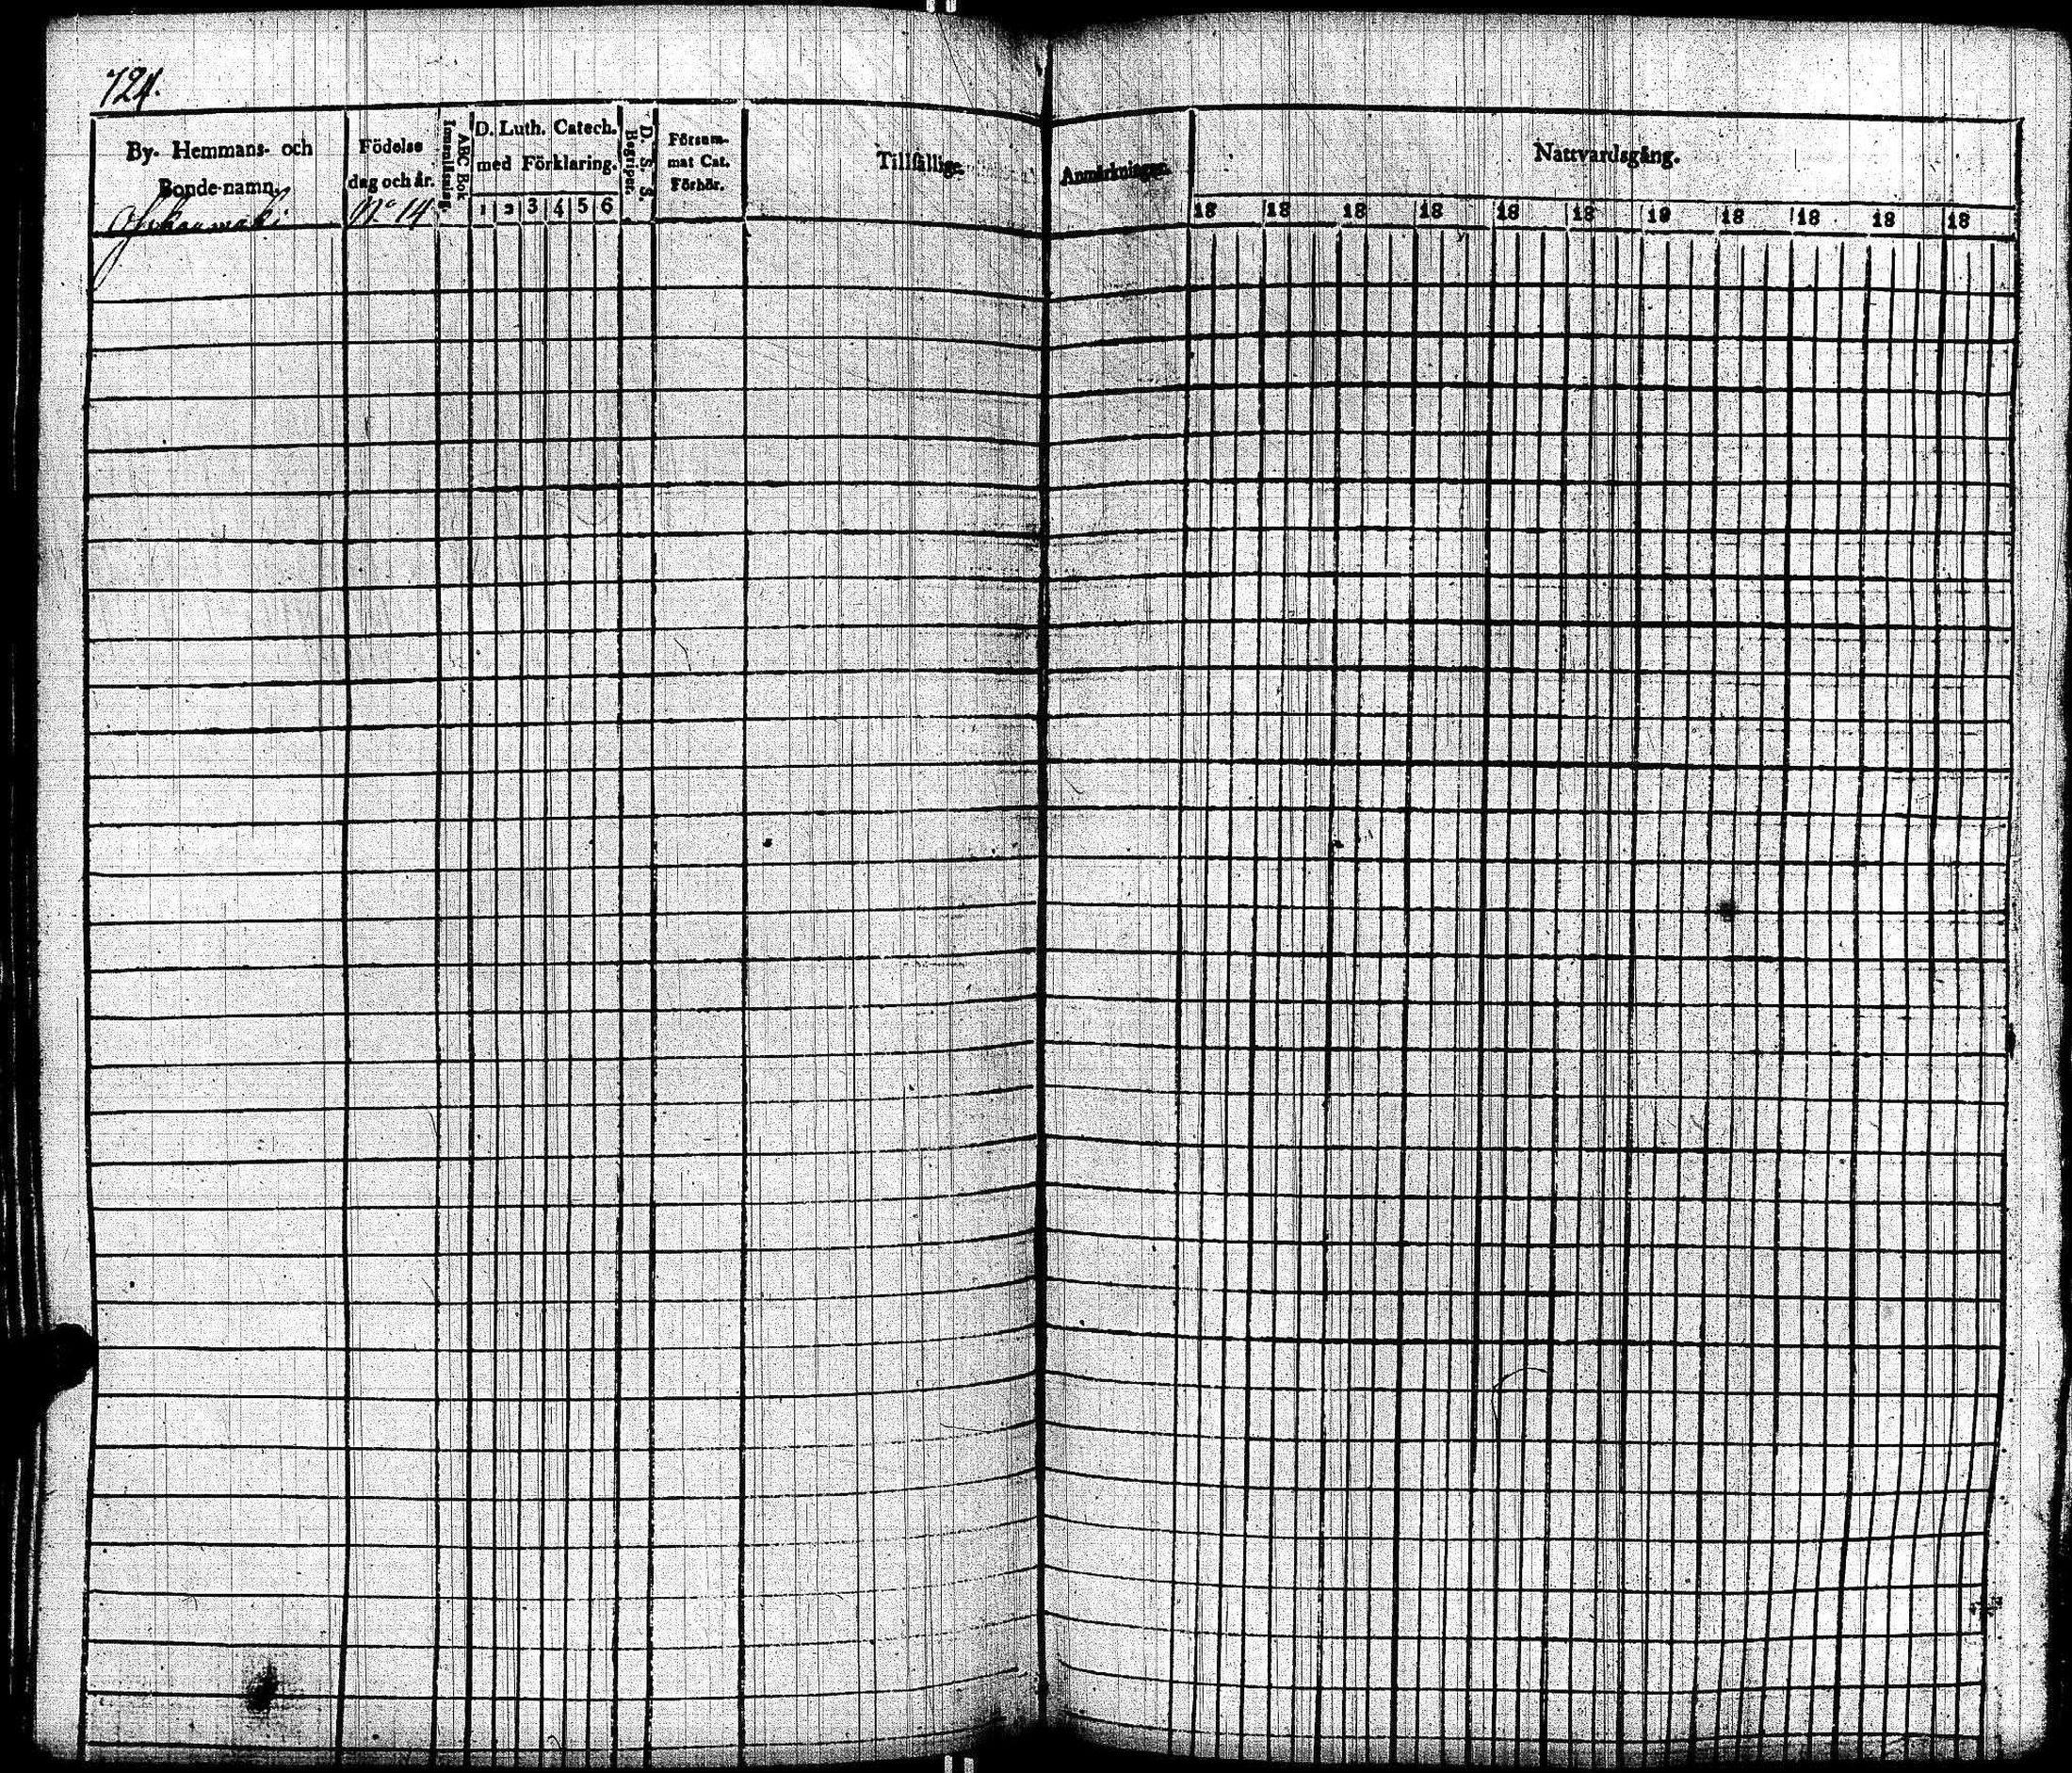 724.
By. Hemmans- och
Bonde-namn.
Födelse
dag och år.
N:o 14
ABC Bok
Innanläsning.
D. Luth. Catech.
med Förklaring.
1 2 3 4 5 6
D. S. S.
Begriper.
Försum-
mat Cat.
Förhör.
Tillfällige
Anmärkningar.
Nattvardsgång.
18 18 18 18 18 18 18 18 18 18 18